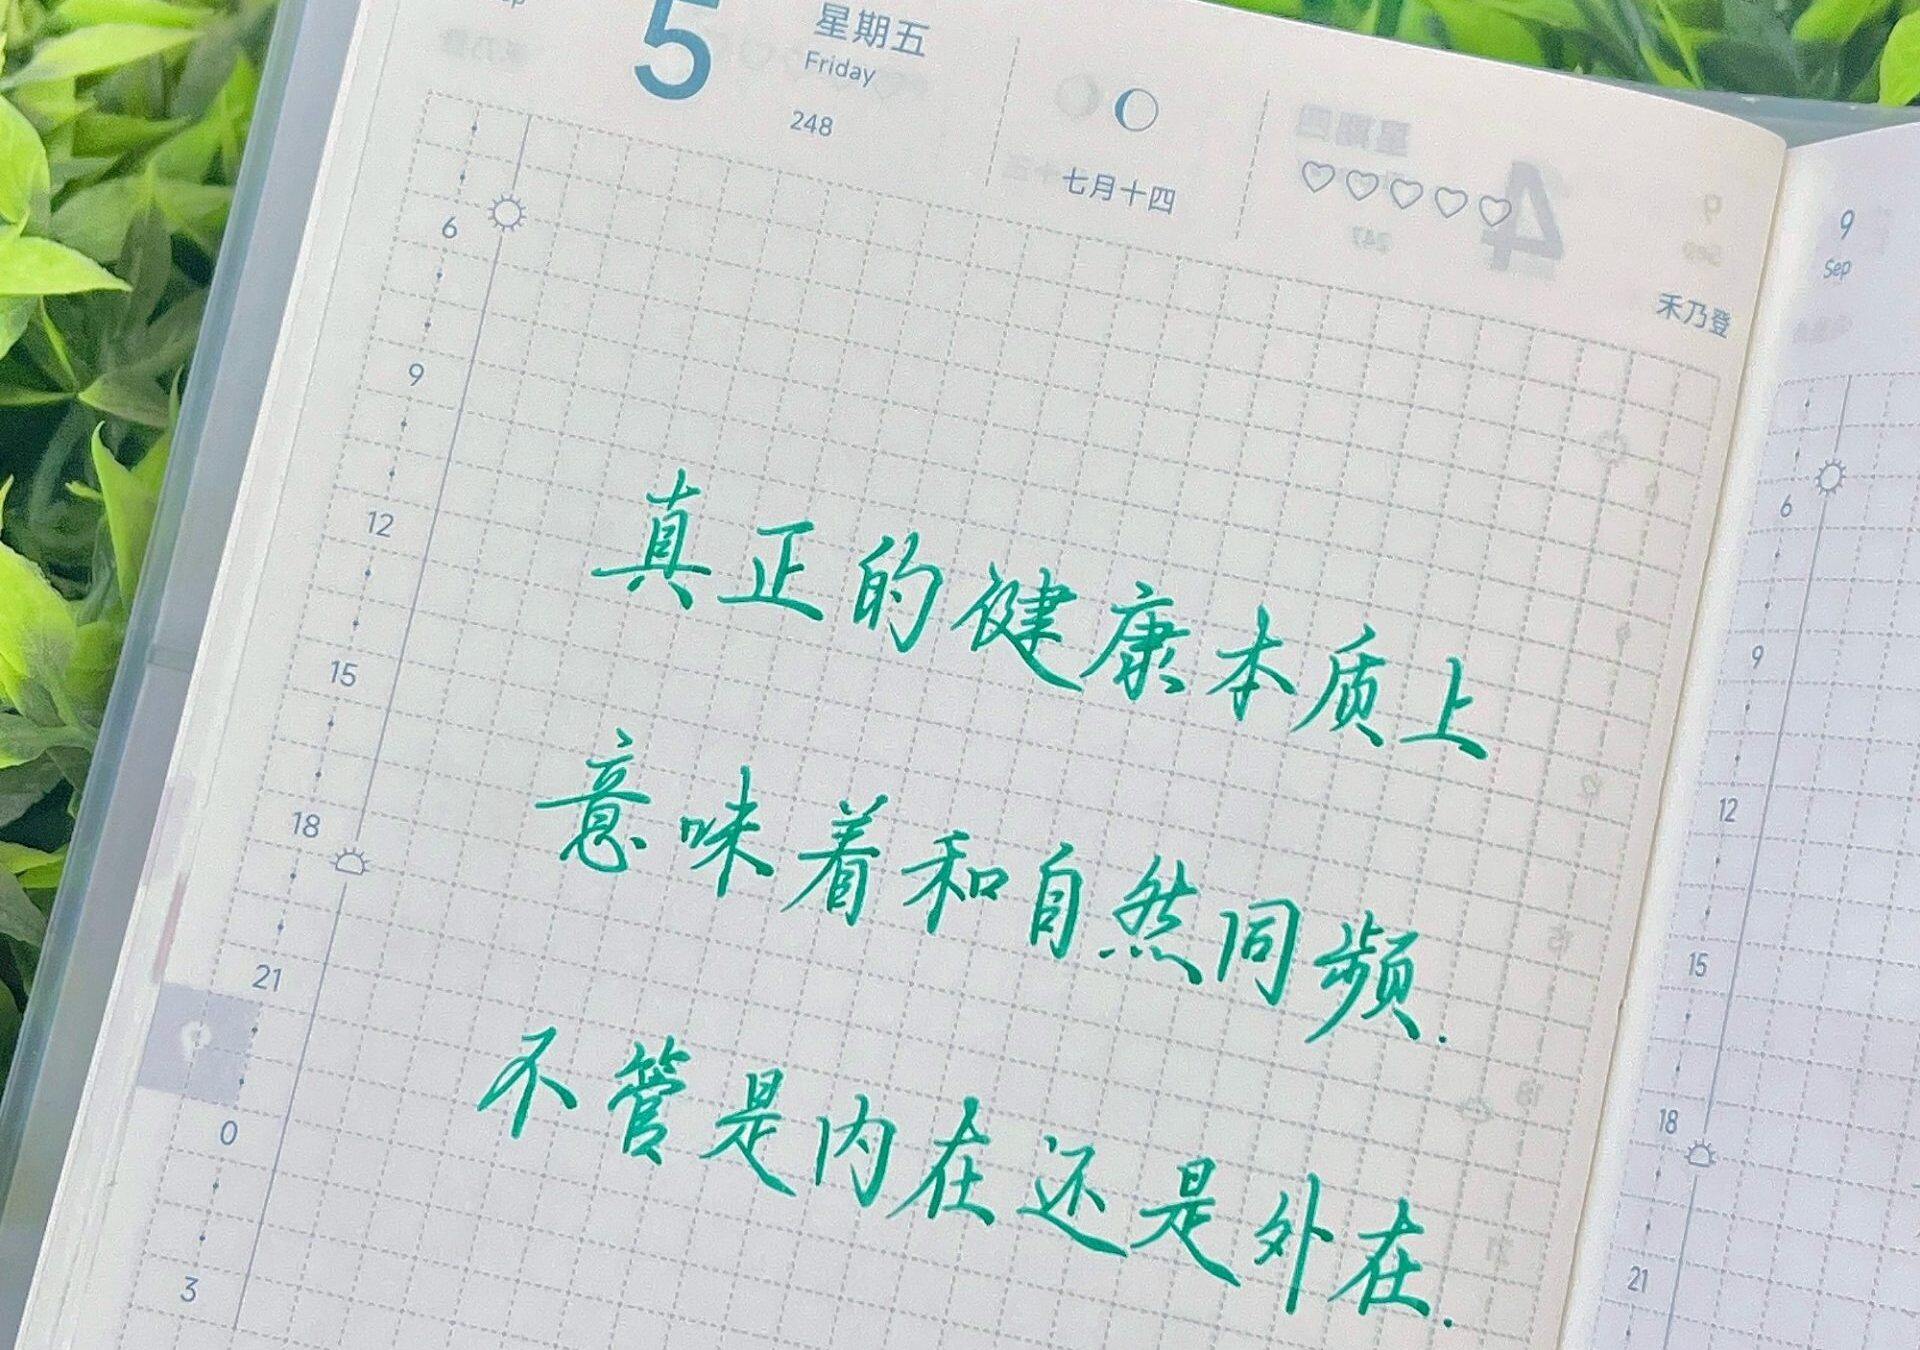 5
星期五
Friday
248
七月十四
禾乃登
6
9
12
15
18
21
0
3
真正的健康本质上
意味着和自然同频.
不管是内在还是外在.
9
Sep
6
9
12
15
18
21